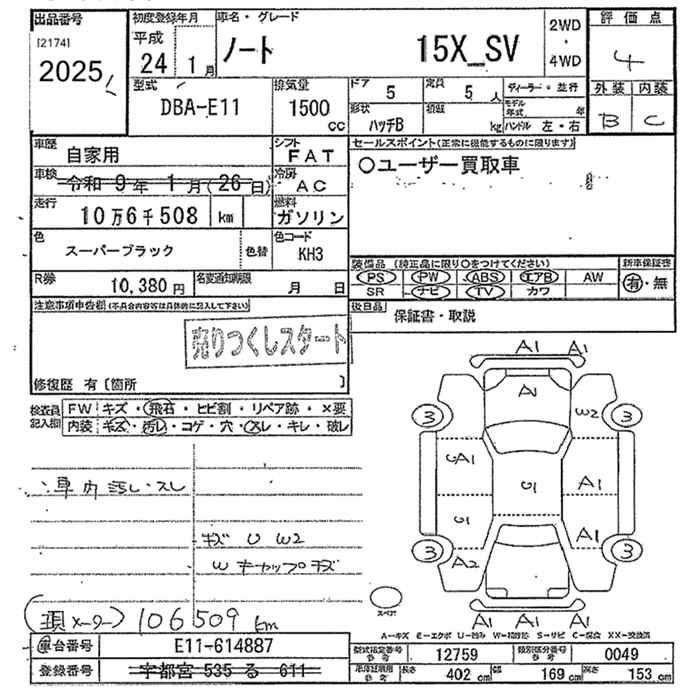 出品番号 初度登録年月 車名・グレード 評価点
[2174]
2025 平成 24 1月 ノート 15X_SV 2WD・4WD 4
型式 排気量 ドア 5 定員 5人 ディーラー・並行 外装 内装
DBA-E11 1500 CC 形状 ハッチB 積載 kg モデル年式 年 ハンドル 左・右 B C
車歴 自家用 シフト FAT セールスポイント(正常に機能するものに限ります)
車検 令和 9年 1月(26日) 冷房 AC ○ユーザー買取車
走行 10万6千508 km 燃料 ガソリン
色 スーパーブラック 色替 色コード KH3
装備品(純正品に限り○をつけてください) 新車保証書
PS PW ABS エアB AW 有・無
SR ナビ TV カワ
R券 10,380円 名変通知期限 月 日
注意事項申告欄(不具合内容等は具体的に記入して下さい) 後日品 保証書・取説
売りつくしスタート
修復歴 有〔箇所 〕
検査員記入欄 FW キズ・飛石・ヒビ割・リペア跡・×要
内装 キズ・汚レ・コゲ・穴・スレ・キレ・破レ
車内汚レ・スレ
キズ U W2
W キャップキズ
(現メーター) 106509 km
A1 A1
A1
3 W2 3
UA1 A1
U1
U1 A1
3 A2 3
A1 A1 A1
スペア
A-キズ E-エクボ U-凹み W-補修跡 S-サビ C-腐食 XX-交換済
車台番号 E11-614887 型式指定番号 参考 12759 類別区分番号 参考 0049
登録番号 宇都宮 535 る 611 長さ 402 cm 幅 169 cm 高さ 153 cm